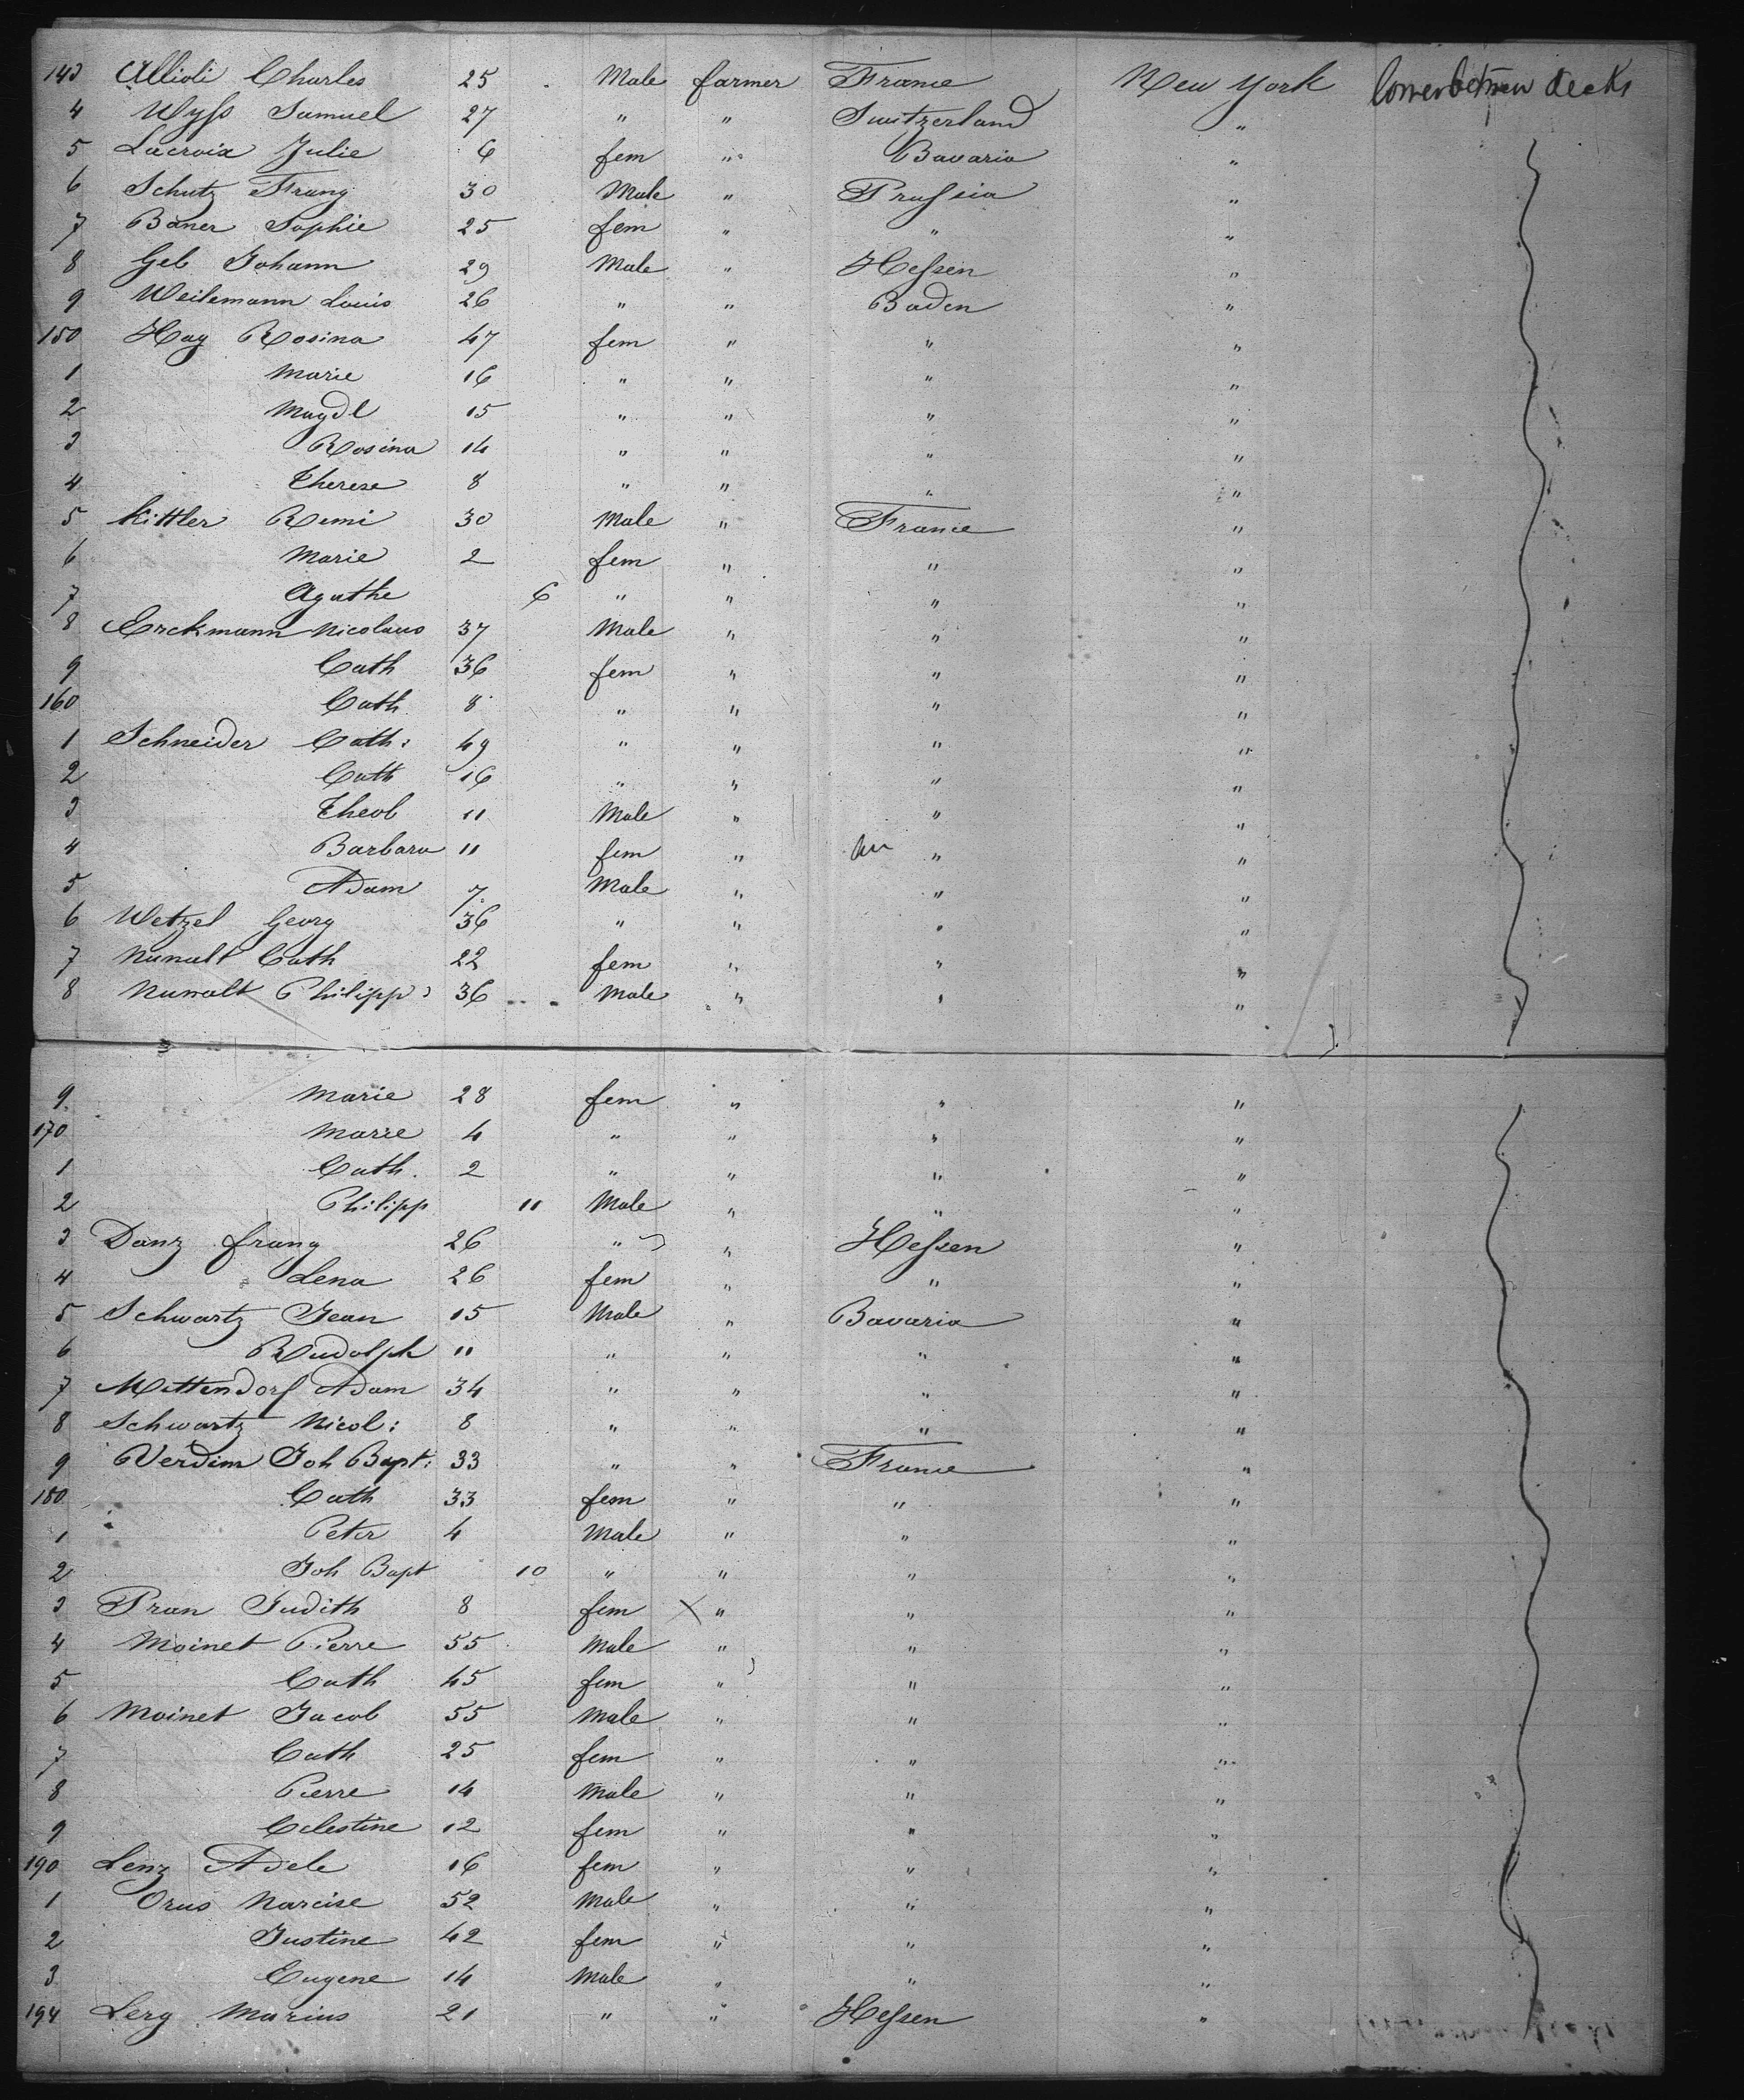 143 Allioli Charles 25 Male farmer France New York lower between decks
4 Wyss Samuel 27 " " Switzerland "
5 Lacroix Julie 6 fem " Bavaria "
6 Schutz Franz 30 Male " Prussia "
7 Baner Sophie 25 fem " " "
8 Geb Johann 29 Male " Hessen "
9 Weilemann Louis 26 " " Baden "
150 Hag Rosina 47 fem " " "
1 Marie 16 " " " "
2 Magdl 15 " " " "
3 Rosina 14 " " " "
4 Therese 8 " " " "
5 Kittler Remi 30 Male " France "
6 Marie 2 fem " " "
7 Agathe 6 " " " "
8 Erckmann Nicolaus 37 Male " " "
9 Cath 36 fem " " "
160 Cath 8 " " " "
1 Schneider Cath: 49 " " " "
2 Cath 16 " " " "
3 Theob 11 Male " " "
4 Barbara 11 fem " " "
5 Adam 7 Male " " "
6 Wetzel Georg 36 " " " "
7 Cath 22 fem " " "
8 Philipp 36 Male " " "
9 Marie 28 fem " " "
170 Marie 4 " " " "
1 Cath. 2 " " " "
2 Philipp 11 Male " " "
3 Danz Franz 26 " " Hessen "
4 Lena 26 fem " " "
5 Schwartz Jean 15 Male " Bavaria "
6 Rudolph 11 " " " "
7 Mittendorf Adam 34 " " " "
8 Schwartz Nicol: 8 " " " "
9 Verdim Joh Bapt: 33 " " France "
180 Cath 33 fem " " "
1 Peter 4 Male " " "
2 Joh Bapt 10 " " " "
3 Pran Judith 8 fem X " " "
4 Moinet Pierre 55 Male " " "
5 Cath 45 fem " " "
6 Moinet Jacob 55 Male " " "
7 Cath 25 fem " " "
8 Pierre 14 Male " " "
9 Celestine 12 fem " " "
190 Lenz Adele 16 fem " " "
1 Orus Narcise 52 Male " " "
2 Justine 42 fem " " "
3 Eugene 14 Male " " "
194 Lerg Marius 21 " " Hessen "